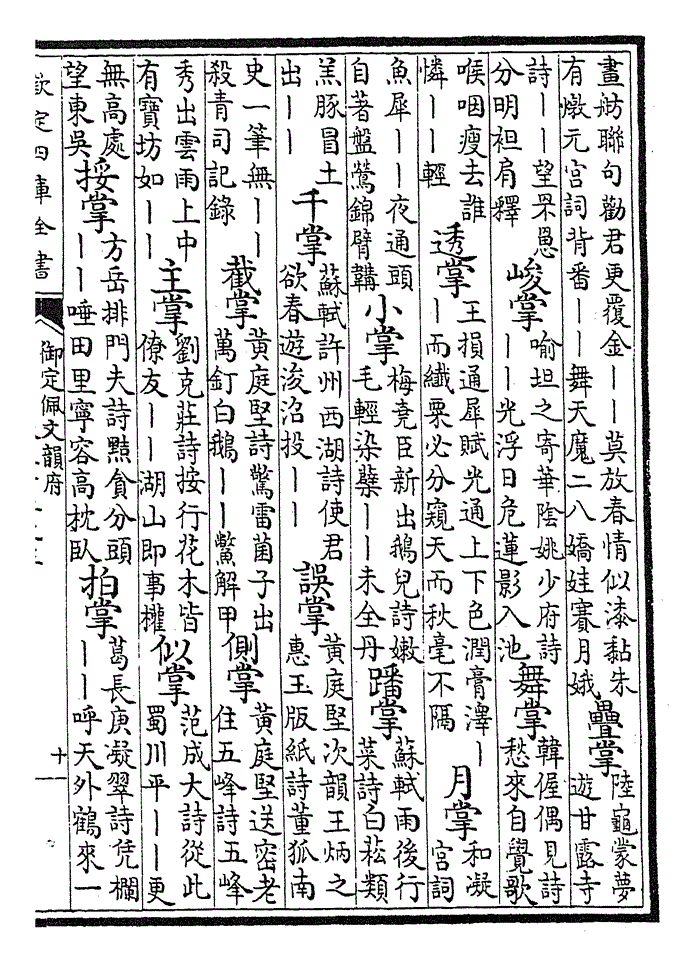 畫舫聯句勸君更覆金——莫放春情似漆黏朱
有燉元宮詞背番——舞天魔二八嬌娃賽月娥
疊掌
陸龜蒙夢
遊甘露寺
詩——望罘恩
分明袒肩釋
峻掌
喻坦之寄華陰姚少府詩
——光浮日危蓮影入池
舞掌
韓偓偶見詩
愁來自覺歌
喉咽瘦去誰
憐——輕
透掌
王損通犀賦光通上下色潤膏澤—
—而纖粟必分窺天而秋毫不隔
月掌
和凝
宮詞
魚犀——夜通頭
自著盤鶯錦臂韝
小掌
梅堯臣新出鵝兒詩嫩
毛輕染蘗——未全丹
蹯掌
蘇軾雨後行
菜詩白菘類
羔豚冒土
出——
千掌
蘇軾許州西湖詩使君
欲春遊浚沼投——
誤掌
黃庭堅次韻王炳之
惠玉版紙詩董狐南
史一筆無——
殺青司記錄
截掌
黃庭堅詩驚雷菌子出
萬釘白鵝——鱉解甲
側掌
黃庭堅送密老
住五峰詩五峰
秀出雲雨上中
有寶坊如——
主掌
劉克莊詩按行花木皆
僚友——湖山即事權
似掌
范成大詩從此
蜀川平——更
無高處
望東吳
挼掌
方岳排門夫詩黠貪分頭
——唾田里寧容高枕臥
拍掌
葛長庚凝翠詩凭欄
——呼天外鶴來一
欽定四庫全書
御定佩文韻府
十